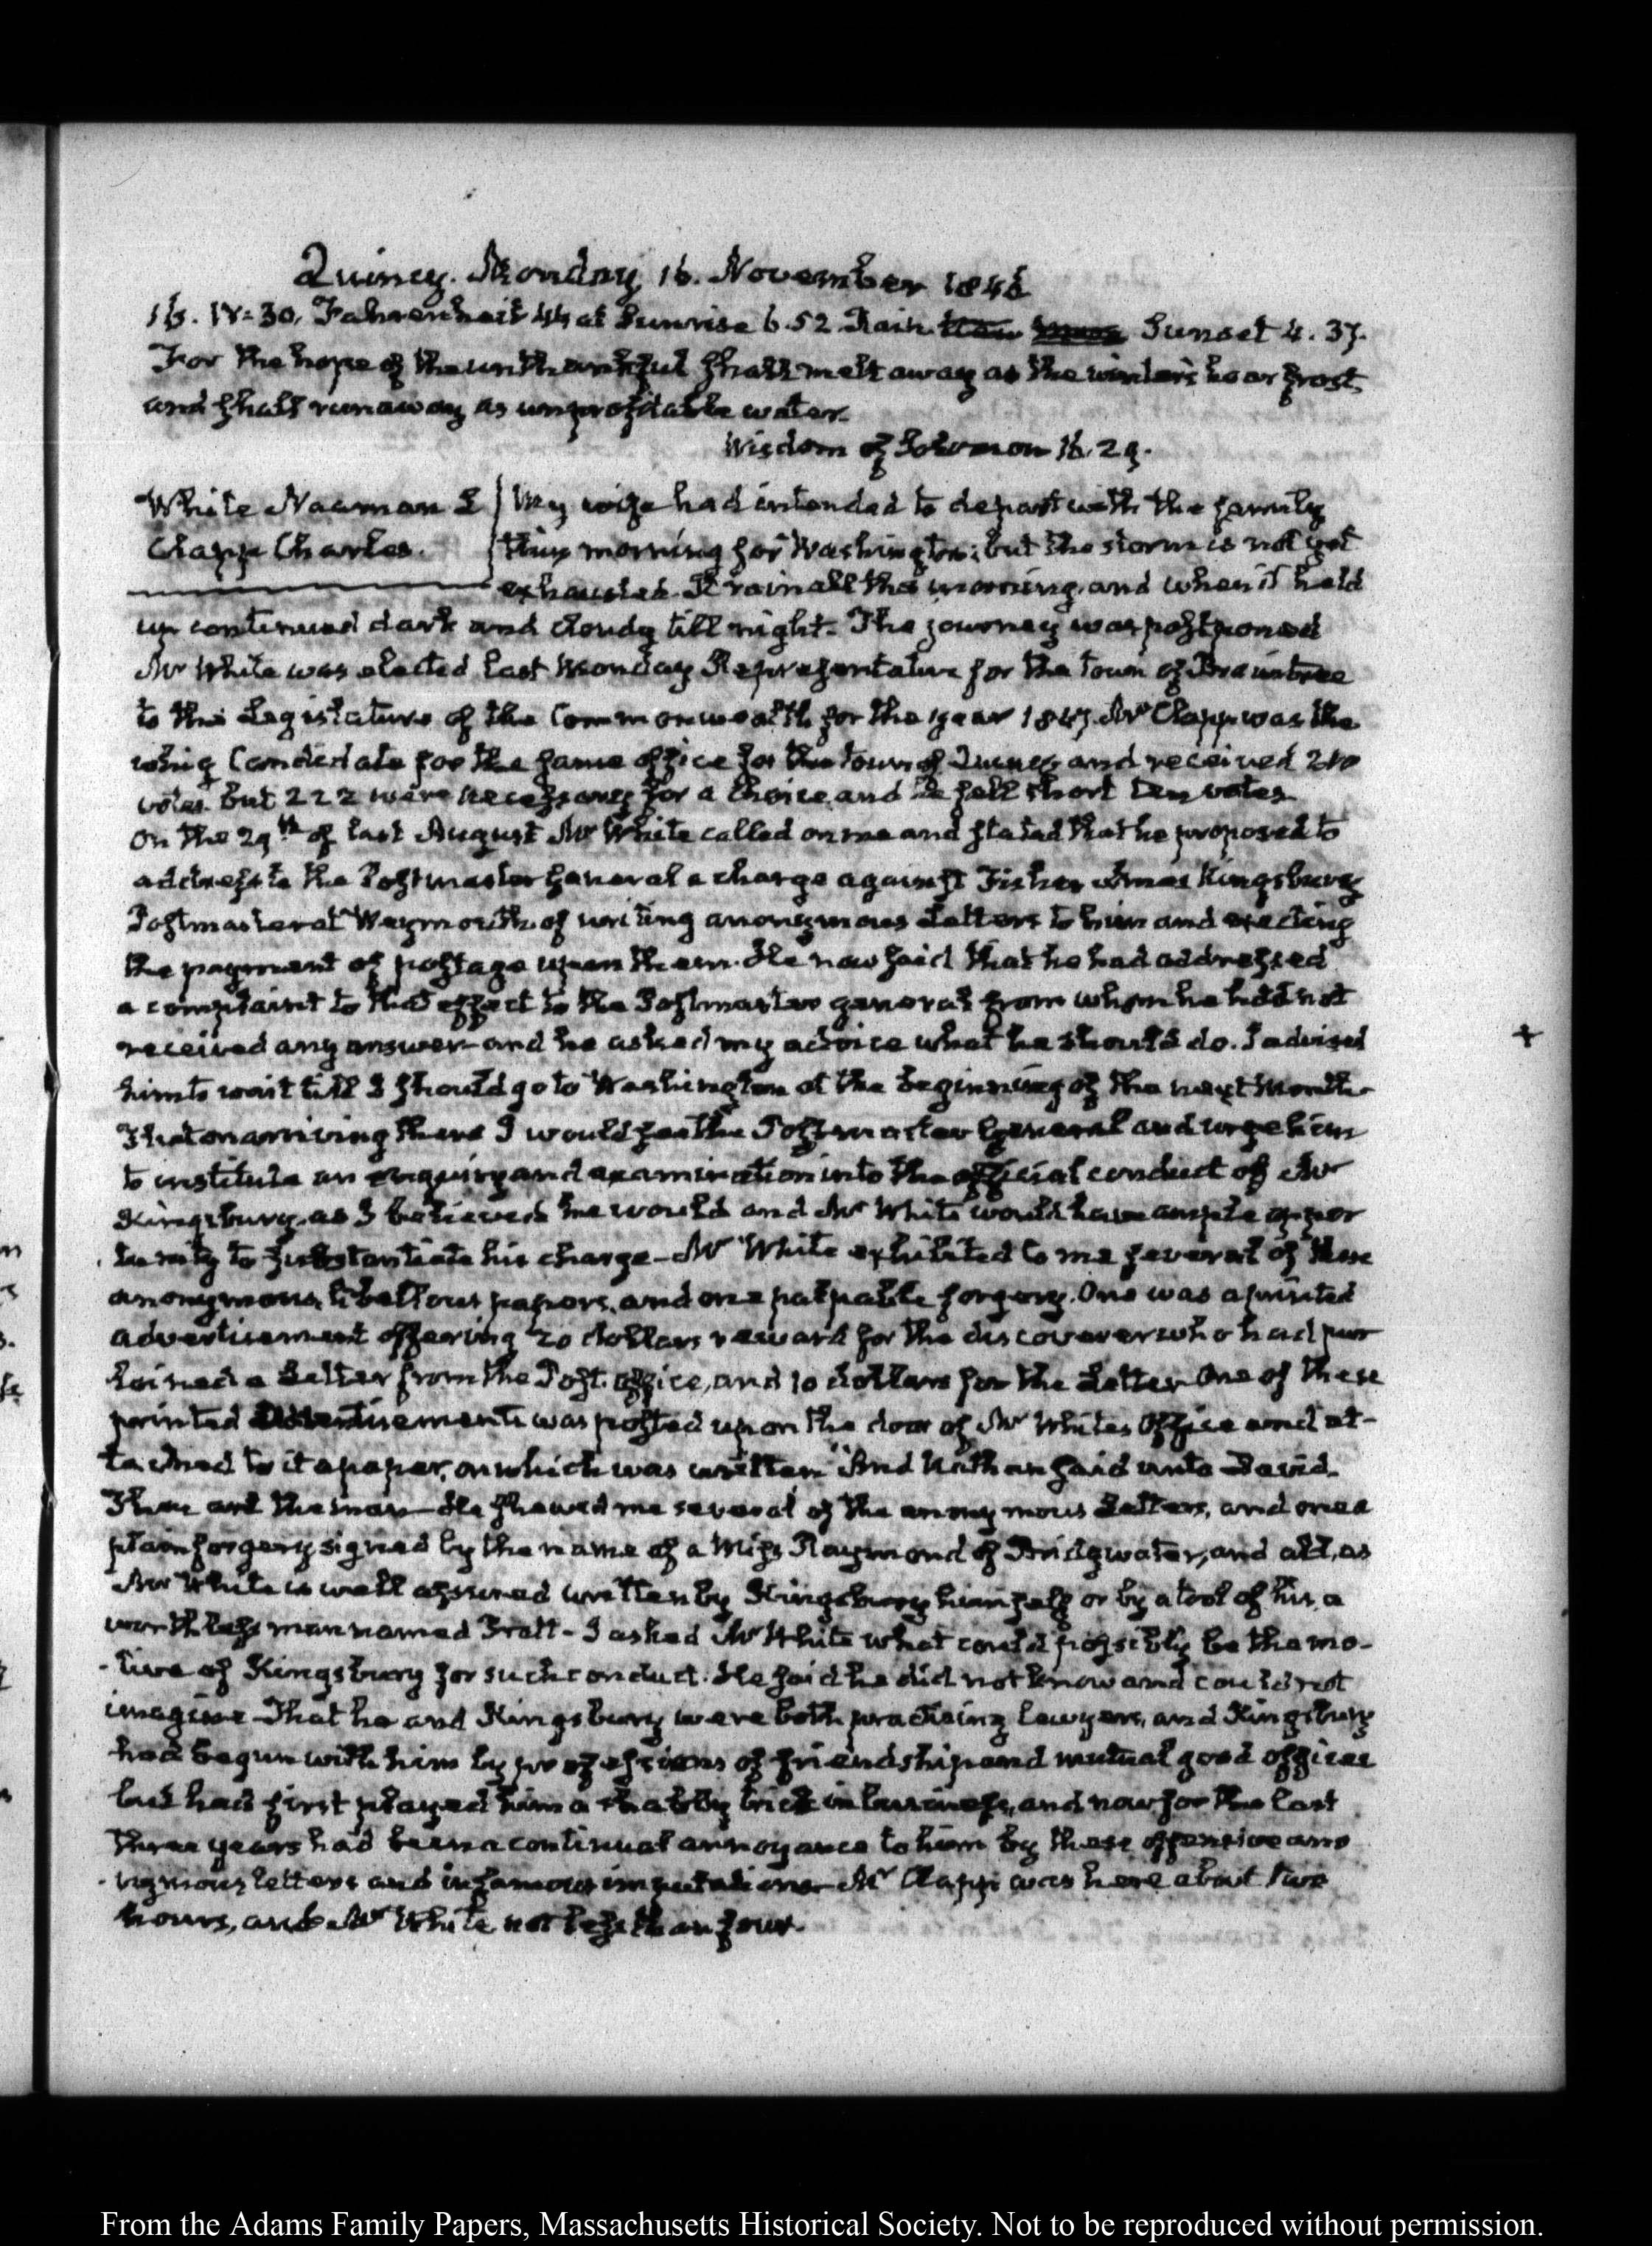 Quincy. Monday 16. November 1846
16. IV:30. Fahrenheit 44 at Sunrise 6.52. Rain. Sunset 4.37.
For the hope of the unthankful shall melt away as the winters hoar frost,
and shall run away as unprofitable water.
Wisdom of Solomon 16.29.
White Naaman L
Clapp Charles.
My wife had intended to depart with the family
this morning for Washington; but the storm is not yet
exhausted. It rain all the morning, and when it held
up continued dark and cloudy till night. The journey was postponed
Mr White was elected last Monday Representative for the town of Braintree
to the Legislature of the Commonwealth for the year 1847. Mr Clapp was the
whig Candidate for the same office for the town of Quincy and received 210
votes. but 222 were necessary for a choice, and he fell short ten votes.
On the 29th of last August Mr White called on me and stated that he proposed to
address to the Postmaster general a charge against Fisher Ames Kingsbury
Postmaster at Weymouth, of writing anonymous Letters to him and exacting
the payment of postage upon them. He now said that he had addressed
a complaint to that effect to the Postmaster general from whom he had not
received any answer—and he asked my advice what he should do. I advised
him to wait till I should go to Washington at the beginning of the next Month—
That on arriving there I would see the Postmaster General and urge him
to institute an enquiry and examination into the official conduct of Mr
Kingsbury, as I believed he would and Mr White would have ample oppor
tunity to substantiate his charge—Mr White exhibited to me several of these
anonymous, libellous papers, and one palpable forgery. One was a printed
advertisement offering 20 dollars reward for the discoverer who had pur
loined a Letter from the Post-office, and 10 dollars for the Letter One of these
printed Advertisements was posted upon the door of Mr Whites Office and at-
tached to it a paper, on which was written "And Nathan said unto David.
Thou art the man—He shewed me several of the anonymous Letters, and one a
plain forgery signed by the name of a Miss Raymond of Bridgwater, and all, as
Mr White is well assured written by Kingsbury himself or by a tool of his, a
worthless man named Pratt—I asked Mr White what could possibly be the mo-
-tive of Kingsbury for such conduct. He said he did not know and could not
imagine—That he and Kingsbury were both practising lawyers, and Kingsbury
had begun with him by professions of friendship and mutual good offices
but had first played him a shabby trick in business, and now for the last
three years had been a continual annoyance to him by these offensive ano
-nymous letters and infamous imputations—Mr Clapp was here about two
hours, and Mr White not less than four.
From the Adams Family Papers, Massachusetts Historical Society. Not to be reproduced without permission.